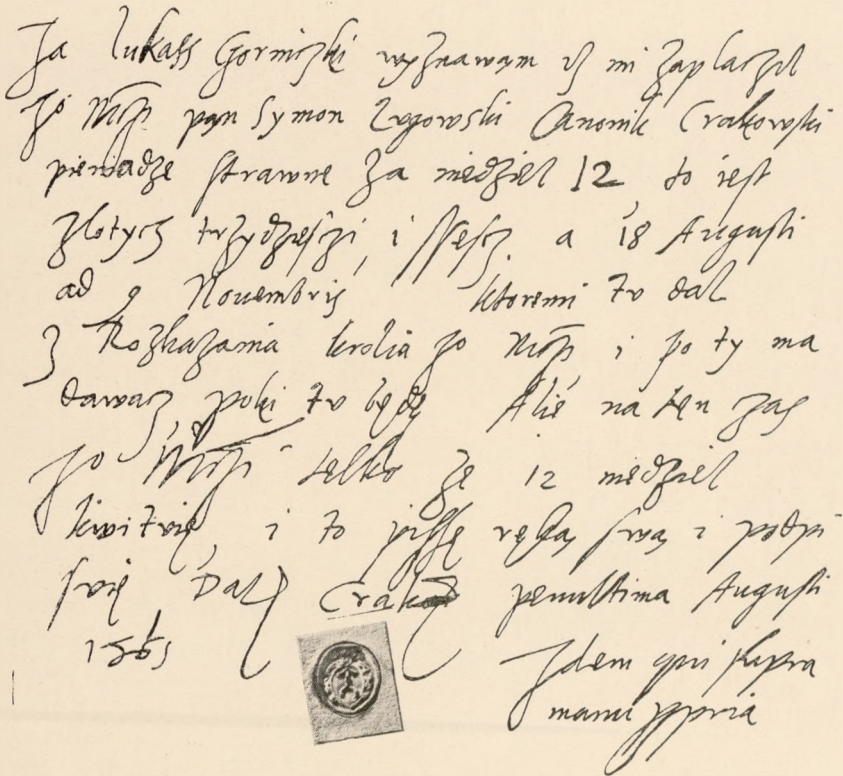 Ja Lukass Gorniczki wyznawąm iż mi zaplaczil
pan Symon Lugowski Canonik Crakowski
pieniądze strawne za niedziel 12 to iest
zlotych trzydzieszczi, i ssescz. a 18 Augusti
ad 9 Nouembris, ktore mi tu dal
z Rozkazania krolia i po ty ma
dawacz, poki tu będę Alie na tęn czas
telko ze 12 niedziel
kwituię, i to pisssę ręką swą i podpi
suię Crakow penultima Augusti
Idem qui supra
manu ppria